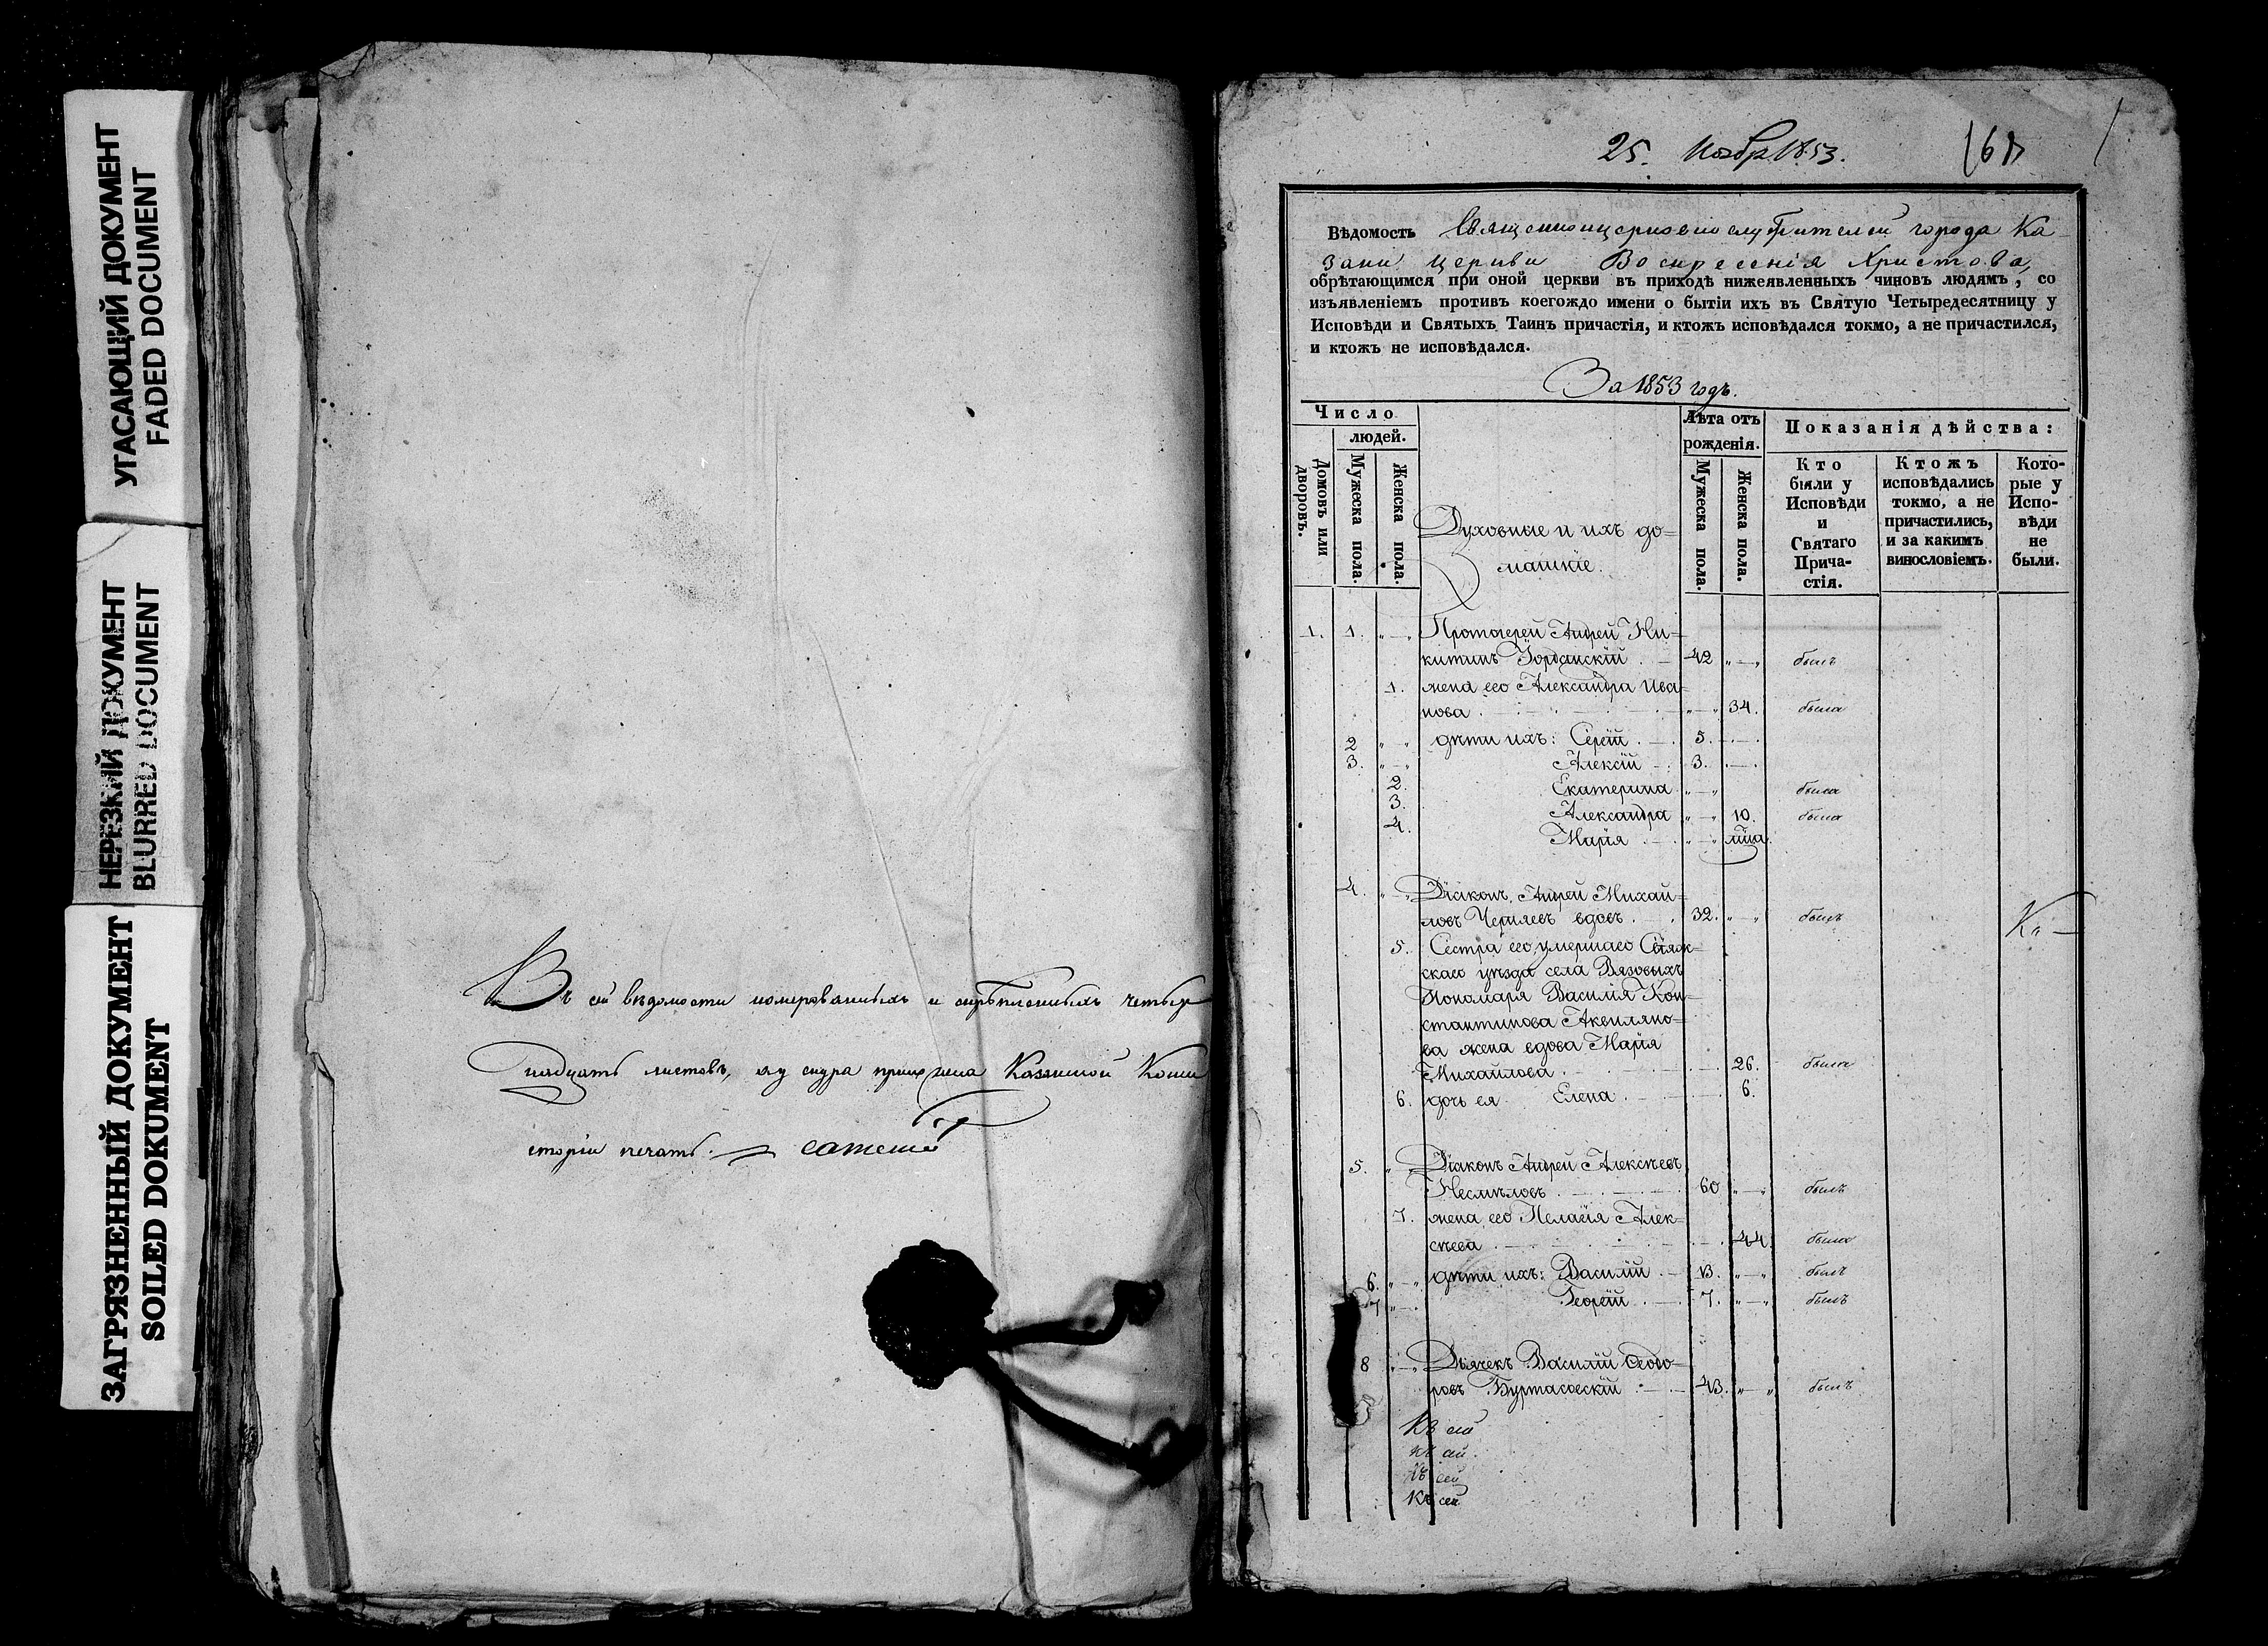 УГАСАЮЩИЙ ДОКУМЕНТ
FADED DOCUMENT
НЕРЕЗКИЙ ДОКУМЕНТ
BLURRED DOCUMENT
ЗАГРЯЗНЕННЫЙ ДОКУМЕНТ
SOILED DOKUMENT
Въ сей вѣдомости номерованныхъ и скрѣпленныхъ четыр
надцать листовъ, къ снура приложена Казанской Конси
сторіи печать.
25. Ноябр 1853.
Вѣдомость Священноцерковнослужителей города Ка
зани церкви Воскресенія Христова,
обрѣтающимся при оной церкви въ приходѣ нижеявленныхъ чиновъ людямъ, со
изъявленіемъ противъ коегождо имени о бытіи ихъ въ Святую Четыредесятницу у
Исповѣди и Святыхъ Таинъ причастія, и ктожъ исповѣдался токмо, а не причастился,
и ктожъ не исповѣдался.
За 1853 годъ.
Число
людей.
Домовъ или дворовъ.
Мужеска пола.
Женска пола.
Духовные и ихъ до=
машніе.
Лѣта отъ
рожденія.
Мужеска пола.
Женска пола.
Показанія дѣйства:
Кто
были у
Исповѣди
и
Святаго
Прича-
стія.
Ктожъ
исповѣдались
токмо, а не
причастились,
и за какимъ
винословіемъ.
Кото-
рые у
Испо-
вѣди
не
были.
1. 1. „—„ Протоіерей Андрей Ни=
китинъ Іорданскій 42 „—„ былъ
1. жена его Александра Ива=
нова „—„ 34. была
2 „—„ дѣти ихъ: Сергій 5.
3. „—„ Алексій 3.
2. Екатерина „—„ была
3. Александра „—„ 10. была
4. Марія „—„
4. „—„ Діаконъ Андрей Михай=
ловъ Черняевъ вдовъ 32. „—„ былъ
5. Сестра его, умершаго Свіяж=
скаго уѣзда села Вязовыхъ
Пономаря Василія Кон=
стантинова Аквиляно=
ва жена вдова Марія
Михайлова 26. была
6. дочь ея Елена 6.
5. „ Діаконъ Андрей Алексѣевъ
Несмѣловъ 60 „—„ былъ
7. жена его Пелагія Алек=
сѣева 44. была
6. „—„ дѣти ихъ: Василій 13. „—„ былъ
7 „—„ Георгій 7. „—„ былъ
8 „—„ Дьячекъ Василій Ѳеодо=
ровъ Буртасовскій 43. „—„ былъ
Къ сей
къ сей.
Къ сей
Къ сей